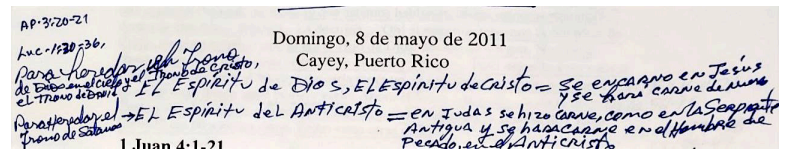 AP. 3:20-21
Luc-1:30-36,
Domingo, 8 de mayo de 2011
Cayey, Puerto Rico
Para heredar el Trono
de Dios en el cielo y el Trono de Cristo,
el Trono de David → EL Espíritu de Dios, EL Espíritu de Cristo = Se encarnó en Jesús
y se hará carne de nuevo
Para Heredar el → EL Espíritu del Anticristo = en Judas se hizo carne, como en la Serpiente
Trono de Satanás
Antigua y se hará carne en el Hombre de
Pecado, en el Anticristo
1 Juan 4:1-21